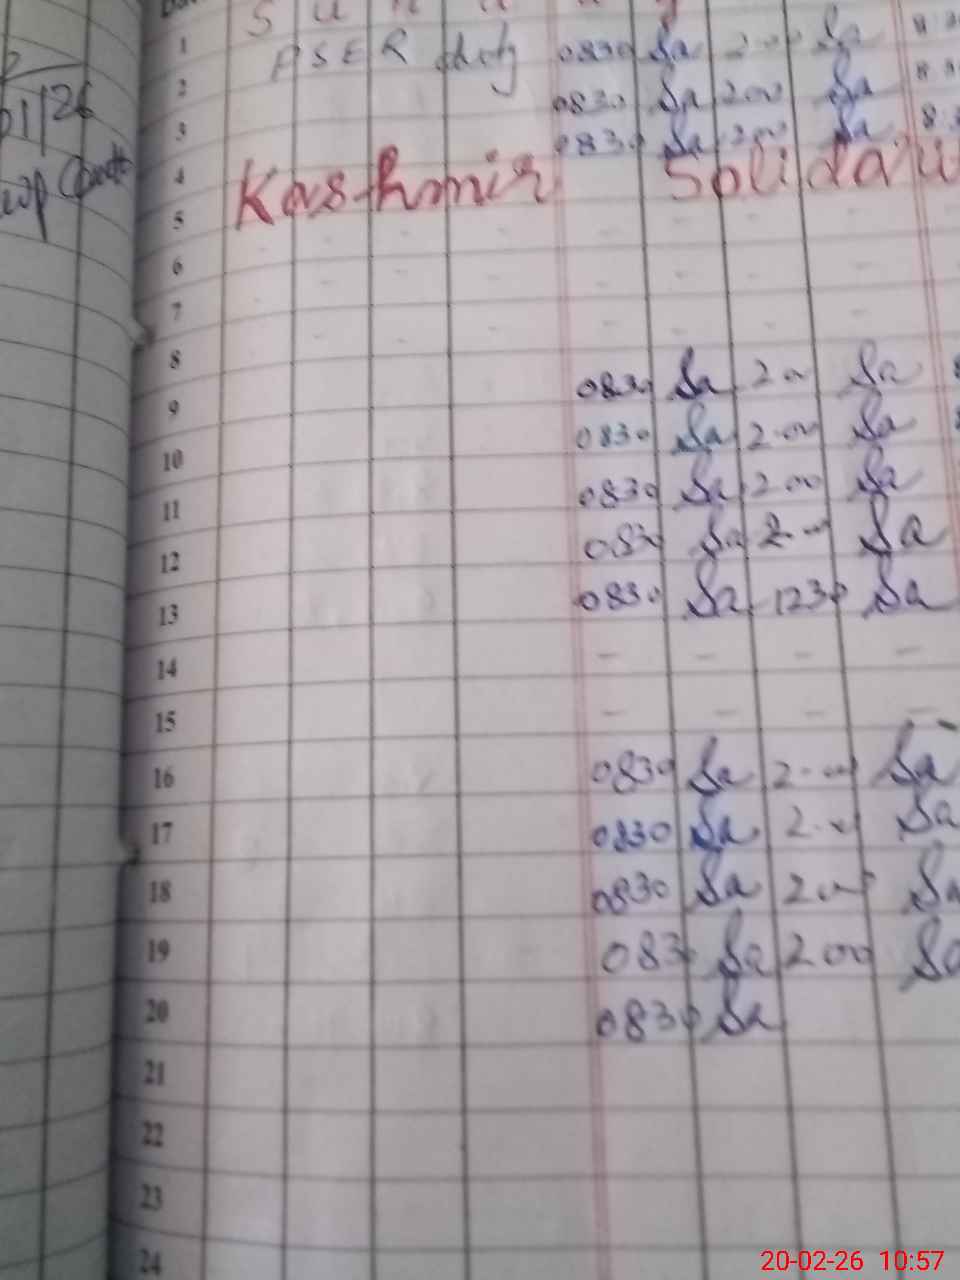 Sunday
1 PSER duty 0830 Sa 200 Sa
2 0830 Sa 200 Sa
3 0830 Sa 200 Sa 8:
4 Kashmir Solidari
5 - - - - - - - -
6 - - - - - - - -
7 - - - - - - - -
8
9 0830 Sa 200 Sa
10 0830 Sa 2.00 Sa
11 0830 Sa 200 Sa
12 0830 Sa 2.00 Sa
13 0830 Sa 1230 Sa
14 - - - -
15 - - - -
16 0830 Sa 2.00 Sa
17 0830 Sa 2.00 Sa
18 0830 Sa 200 Sa
19 0830 Sa 200 Sa
20 0830 Sa
21
22
23
24
01/26
20-02-26 10:57